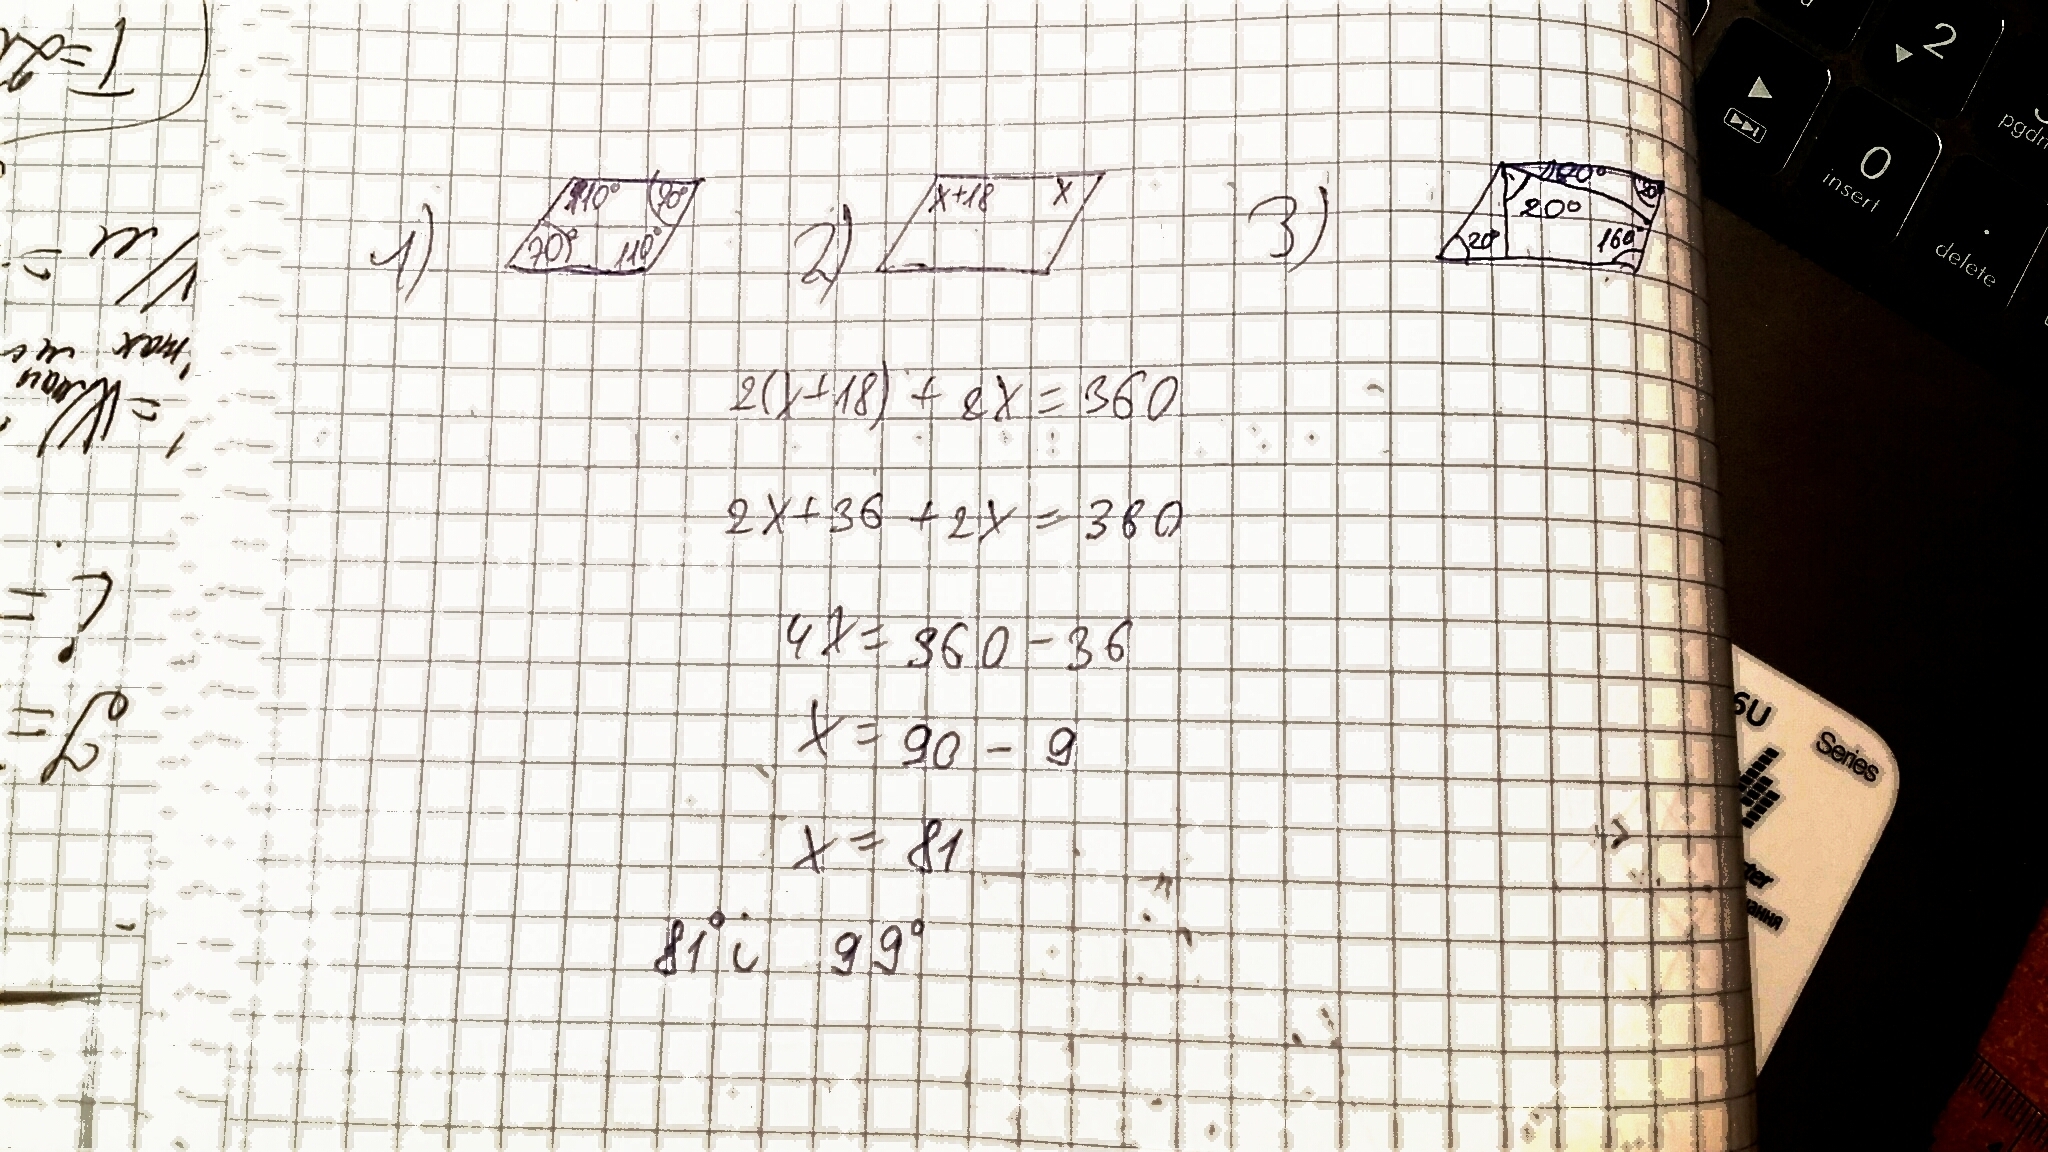 1)
110°
70°
70°
110°
2)
x+18
x
3)
20°
20°
160°
2(x+18) + 2x = 360
2x+36 +2x = 360
4x = 360 - 36
x = 90 - 9
x = 81
81° i 99°
2
0
insert
.
delete
6U
Series